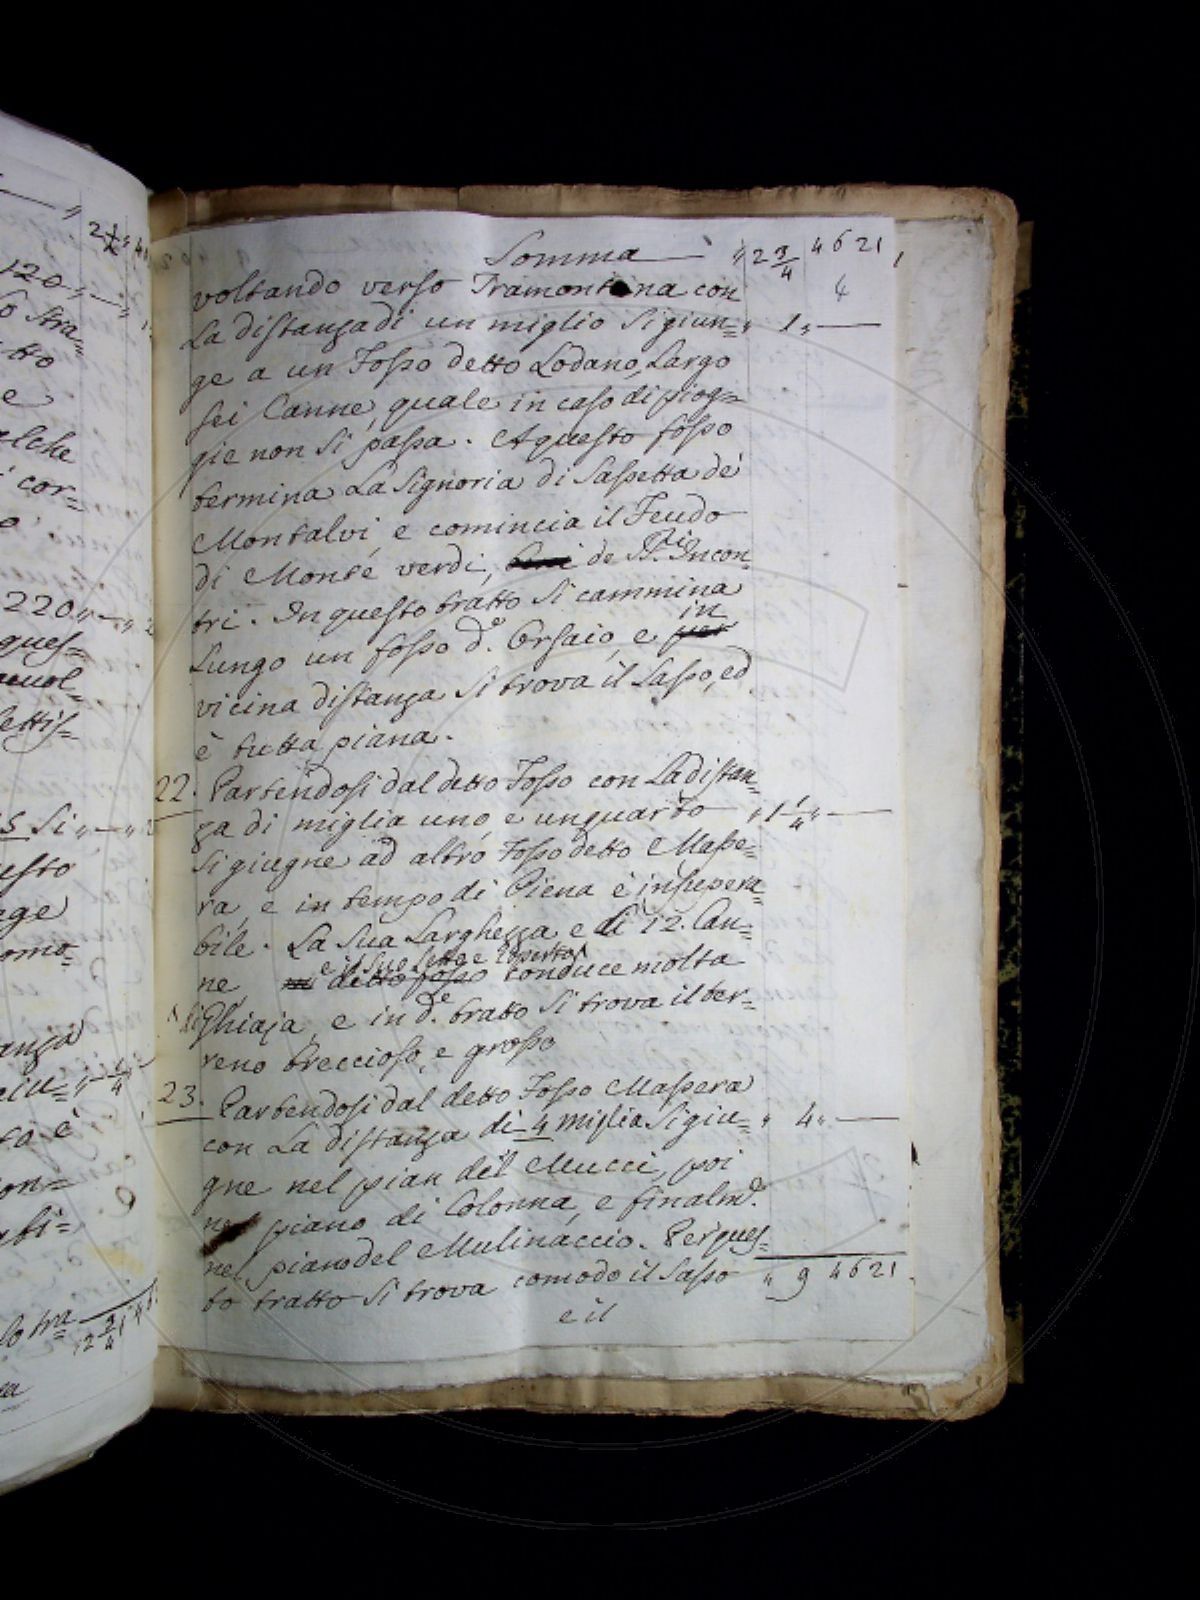 Somma — " 2 3/4 4621
voltando verso Tramontana con 4
La distanza di un miglio si giun= " 1 " —
ge a un Fosso detto Lodano, Largo
sei Canne, quale in caso di piog=
gie non si passa. A questo fosso
termina La Signoria di Sassetta de'
Montalvi, e comincia il Feudo
di Monte verdi, de SS.ri Incon=
tri. In questo tratto si cammina
Lungo un fosso d.o Orsaio, e per in
vicina distanza si trova il Sasso, ed
è tutta piana.
22. Partendosi dal detto Fosso con La distan=
za di miglia uno, e un quarto " 1 1/4 " —
si giugne ad altro Fosso detto Masse=
ra, e in tempo di Piena è insupera=
bile. La sua Larghezza e di 12. Can=
ne e il suo letto e coperto
detto fosso conduce molta
di Ghiaja, e in d.e tratto si trova il ter=
reno breccioso, e grosso
23. Partendosi dal detto Fosso Massera
con La distanza di 4 miglia si giu= " 4 " —
gne nel pian del Mucci, poi
nel piano di Colonna, e finalm.e
nel piano del Mulinaccio. Per ques=
to tratto si trova comodo il Sasso " 9 4621
e il